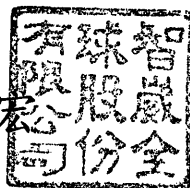 智崴全
球股份
有限公司
宏